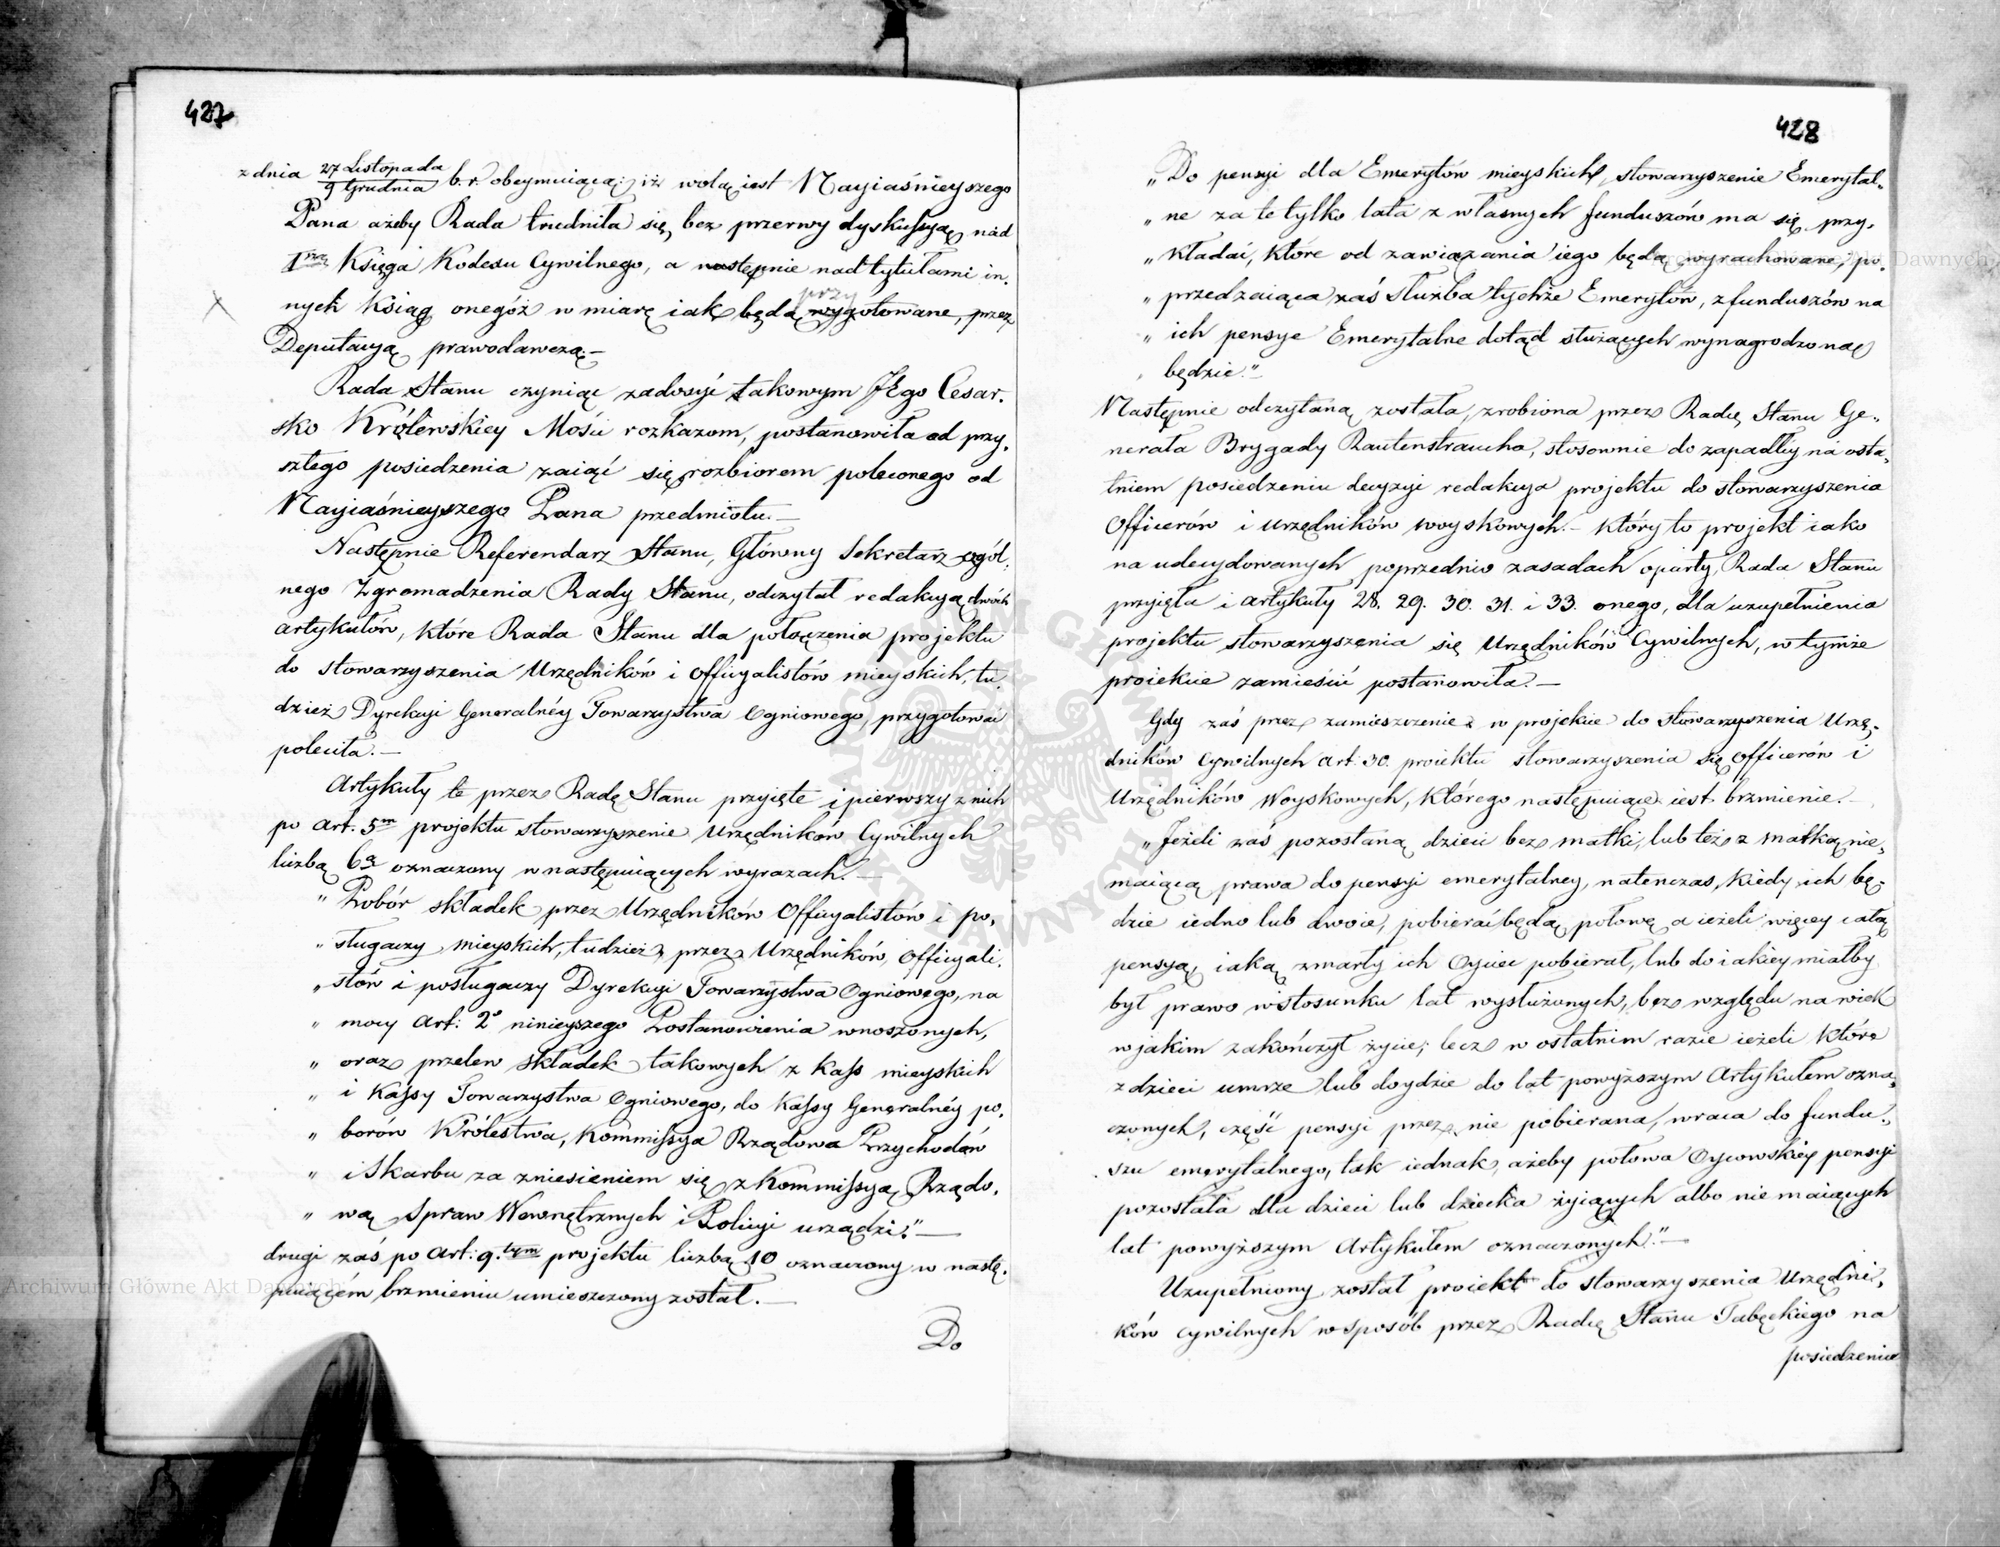 427
z dnia 27 Listopada / 9 Grudnia b. r. obeymuiącą; iż wolą iest Nayiaśnieyszego
Pana ażeby Rada trudniła się, bez przerwy dyskussyą, nad
Iną Księgą Kodexu Cywilnego, a następnie nad tytułami in,
nych Ksiąg onegóż w miarę iak będą przygotowane, przez
Deputacyą prawodawczą.—
Rada Stanu czyniąc zadosyć takowym JEgo Cesar,
sko Królewskiey Mości rozkazom, postanowiła od przy,
szłego posiedzenia zaiąć się rozbiorem poleconego od
Nayiaśnieyszego Pana przedmiotu.—
Następnie Referendarz Stanu, Główny Sekretarz ogól,
nego Zgromadzenia Rady Stanu, odczytał redakcyą dwóch
artykułów, które Rada Stanu dla połączenia projektu
do stowarzyszenia Urzędników i Officyalistów mieyskich, tu,
dzież Dyrekcyi Generalnéy Towarzystwa Ogniowego, przygotować
poleciła.—
Artykuły te przez Radę Stanu przyięte i pierwszy z nich
po art. 5m projektu stowarzyszenie Urzędników Cywilnych
liczbą 6a oznaczony w następuiących wyrazach.—
" Pobór składek przez Urzędników Officyalistów i po,
" sługaczy mieyskich, tudzież przez Urzędników, Officyali,
" stów i posługaczy Dyrekcyi Towarzystwa Ogniowego, na
" mocy art: 2o ninieyszego Postanowienia wnoszonych,
" oraz przelew składek takowych z Kass mieyskich
" i Kassy Towarzystwa Ogniowego, do Kassy Generalnéy po,
" borów Królestwa, Kommissya Rządowa Przychodów
" i Skarbu za zniesieniem się z Kommissyą Rządo,
" wą Spraw Wewnętrznych i Policyi urządzi."—
drugi zaś po art: 9.tym projektu liczbą 10 oznaczony w nastę,
puiącém brzmieniu umieszczony został.—
Do
428
" Do pensyi dla Emerytów mieyskich, stowarzyszenie Emerytal,
" ne za te tylko lata z własnych funduszów ma się przy,
" kładać, które od zawiązania iego będą wyrachowane, po,
" przedzaiąca zaś służba tychże Emerytów, z funduszów na
" ich pensye Emerytalne dotąd służących wynagrodzoną
" będzie."—
Następnie odczytaną została, zrobiona przez Radcę Stanu Ge,
nerała Brygady Rautenstraucha, stosownie do zapadłéy na osta,
tniem posiedzeniu decyzyi redakcya projektu do stowarzyszenia
Officerów i urzędników woyskowych.— Który to projekt iako
na udecydowanych poprzednio zasadach oparty, Rada Stanu
przyięła i artykuły 28. 29. 30. 31. i 33. onego, dla uzupełnienia
projektu stowarzyszenia się Urzędników Cywilnych, w tymże
proiekcie zamieścić postanowiła.—
Gdy zaś przez zamieszczenie w projekcie do stowarzyszenia Urzę,
dników Cywilnych art: 30. proiektu stowarzyszenia się Officerów i
Urzędników Woyskowych, którego następuiące iest brzmienie.—
"Jeżeli zaś pozostaną dzieci bez matki, lub też z matką nie,
maiącą prawa do pensyi emerytalney, natenczas, kiedy ich bę,
dzie iedno lub dwoie, pobierać będą połowę, a ieżeli więcey całą
pensyą, iaką zmarły ich Oyciec pobierał, lub do iakiey miałby
był prawo w stosunku lat wysłużonych, bez względu na wiek
w jakim zakończył życie; lecz w ostatnim razie ieżeli które
z dzieci umrze lub doydzie do lat powyższym Artykułem ozna,
czonych, część pensyi przez nie pobierana, wraca do fundu,
szu emerytalnego, tak iednak, ażeby połowa Oycowskiey pensyi
pozostała dla dzieci lub dziecka żyiących albo nie maiących
lat powyższym Artykułem oznaczonych."—
Uzupełniony został proiekt do stowarzyszenia Urzędni,
ków cywilnych w sposób przez Radcę Stanu Tabęckiego na
posiedzeniu
Archiwum Główne Akt Dawnych
Archiwum Główne Akt Dawnych
ARCHIWUM GŁÓWNE AKT DAWNYCH